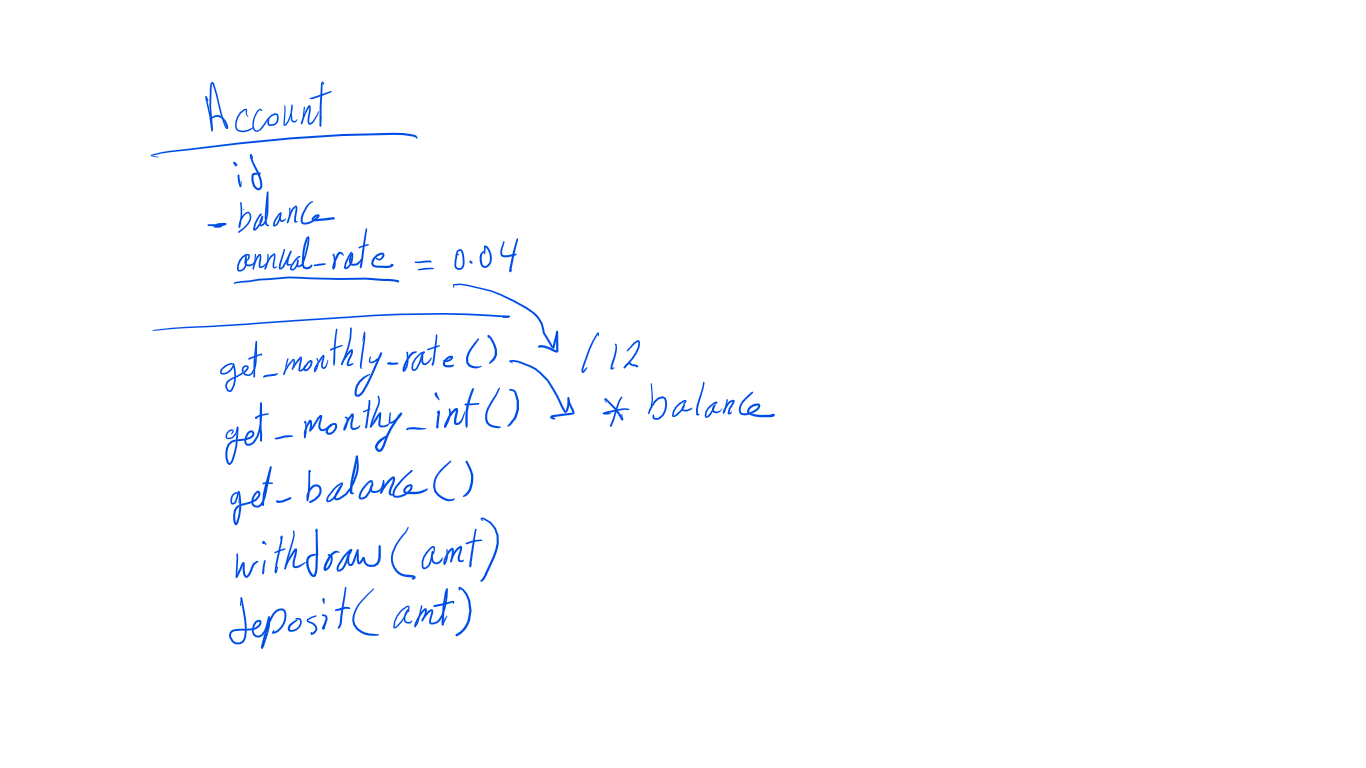 Account
id
- balance
annual_rate = 0.04
get_monthly_rate() / 12
get_monthy_int() * balance
get_balance()
withdraw(amt)
deposit(amt)